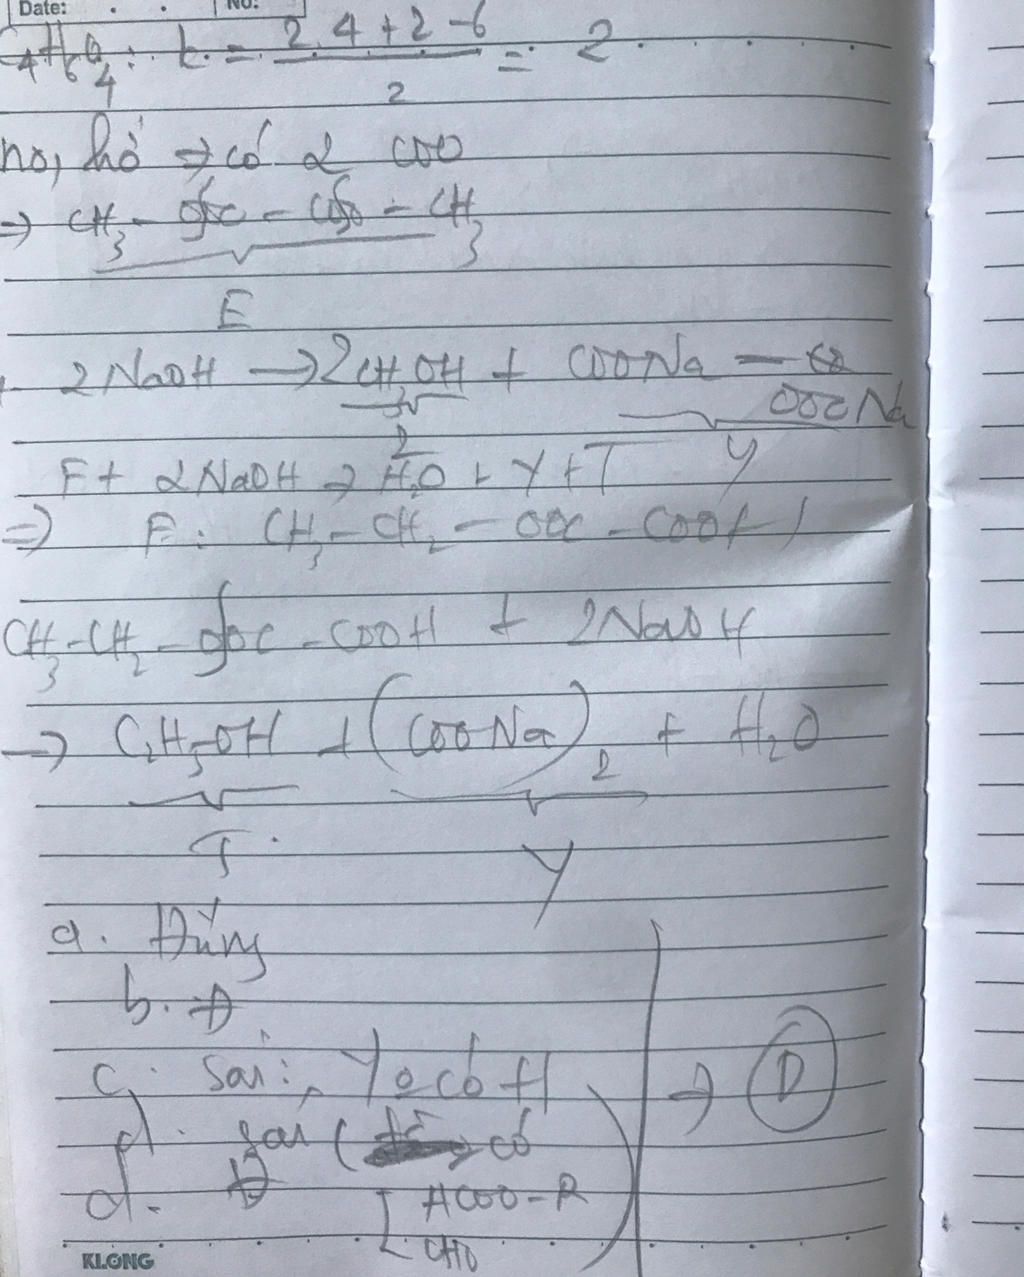 Date: No:
C4H6O4: k = (2.4+2-6)/2 = 2
no, hở => có 2 COO
=> CH3 - OOC - COO - CH3
E
+ 2NaOH -> 2CH3OH + COONa -
OOCNa
Z Y
F + 2NaOH -> H2O + Y + T
=> F: CH3 - CH2 - OOC - COOH
CH3-CH2-OOC-COOH + 2NaOH
-> C2H5OH + (COONa)2 + H2O
T Y
a. Đúng
b. Đ
c. Sai: Y o có H
d. sai ( có
d. Đ HCOO-R
CHO
=> D
KLONG